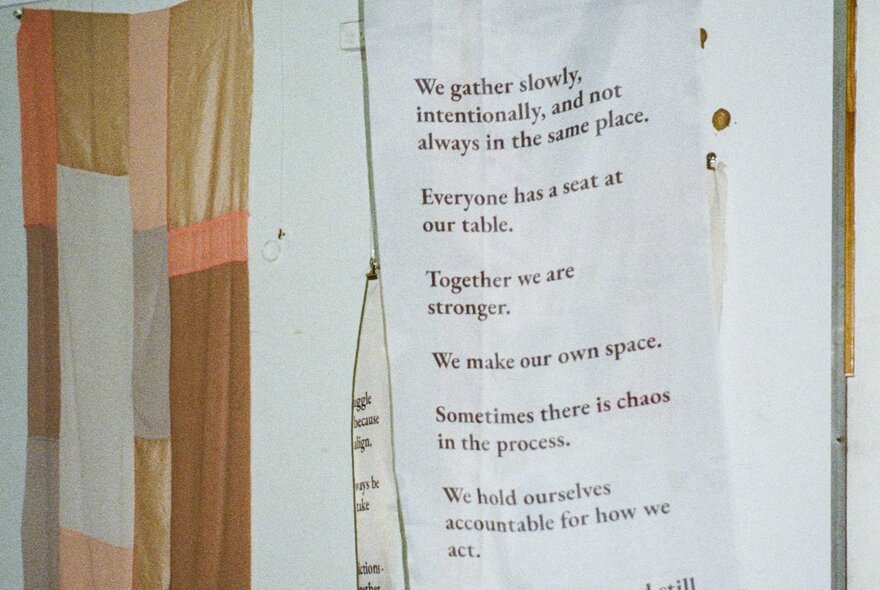 We gather slowly,
intentionally, and not
always in the same place.
Everyone has a seat at
our table.
Together we are
stronger.
We make our own space.
Sometimes there is chaos
in the process.
We hold ourselves
accountable for how we
act.
still
because
align.
take